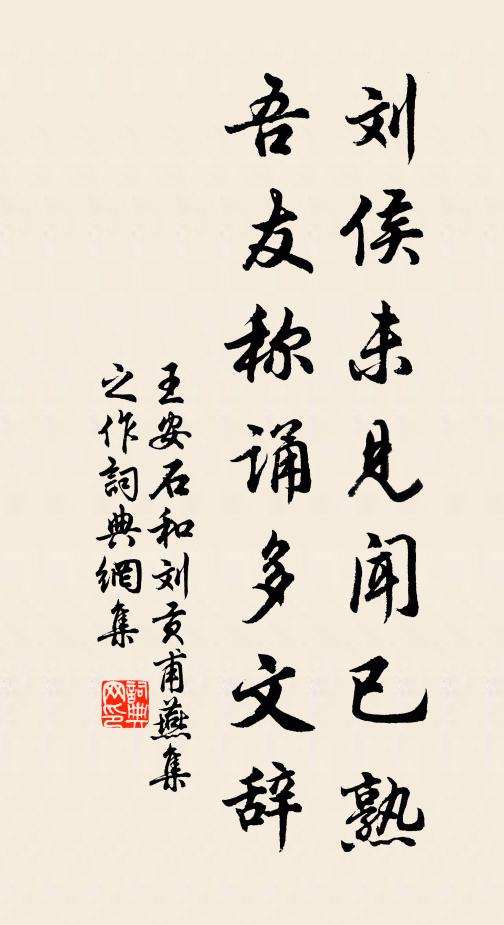 刘侯未见闻已熟
吾友称诵多文辞
王安石和刘贡甫燕集
之作詞典網集
詞典
网印